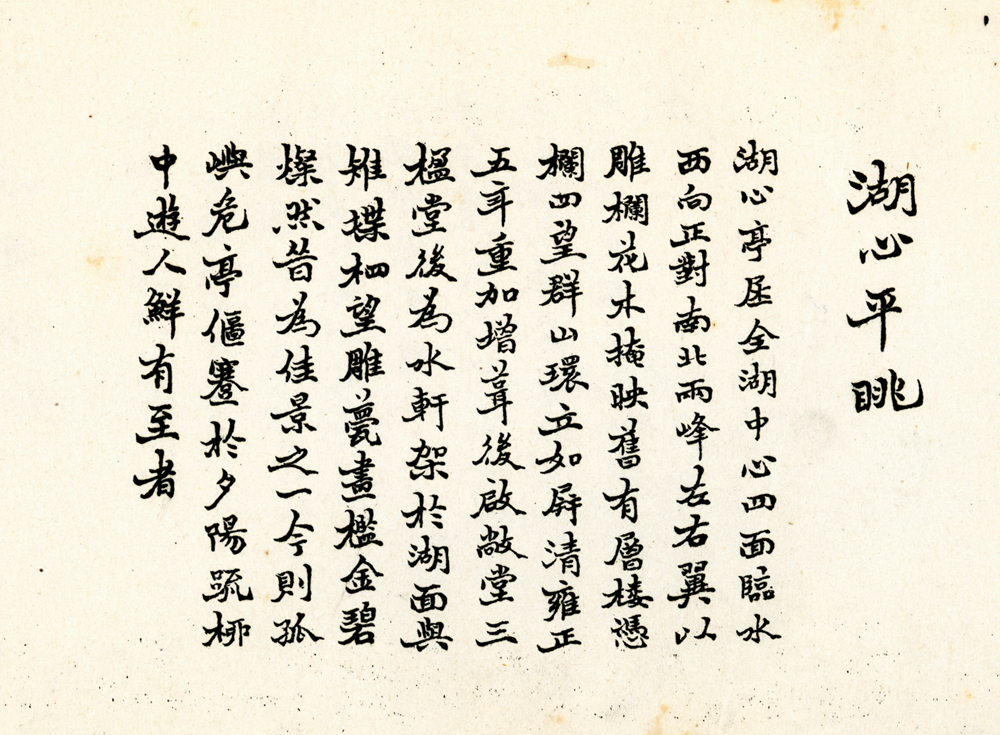 湖心平眺
湖心亭居全湖中心四面臨水
西向正對南北兩峰左右翼以
雕欄花木掩映舊有層樓憑
欄四望群山環立如屏清雍正
五年重加增葺後啟敞堂三
楹堂後為水軒架於湖面與
雉堞相望雕甍畫檻金碧
燦然昔為佳景之一今則孤
嶼危亭偃蹇於夕陽疏柳
中遊人鮮有至者